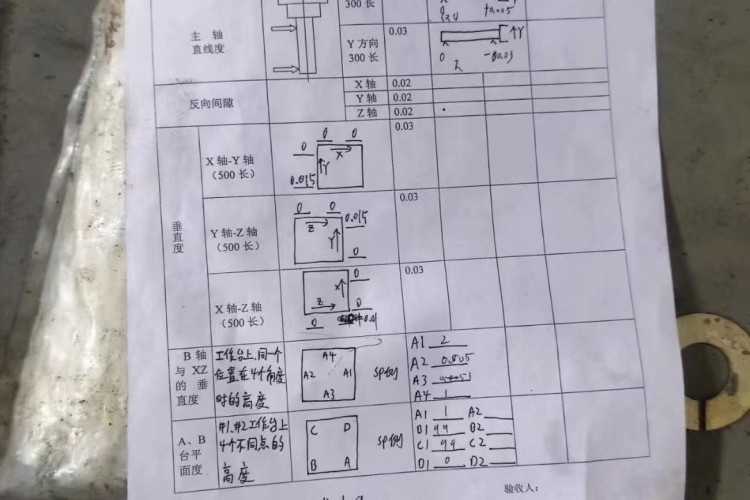 300 长
+0.005
主 轴
直线度
Y 方向
300 长
0.03
Y
0
-0.03
反向间隙
X 轴 0.02
Y 轴 0.02
Z 轴 0.02
垂直度
X 轴-Y 轴
（500 长）
0 0
0 X
Y
0.015
0.03
Y 轴-Z 轴
（500 长）
0 0
Z 0.015
Y
0
0.03
X 轴-Z 轴
（500 长）
0
X
Z 0
0 0.01
0.03
B 轴
与 XZ
的 垂
直度
工作台上,同一个
位置在4个角度
时的高度
A4
A2 A1
A3
A1 2
A2 0.805
A3
A4 1
A、B
台平
面度
#1,#2工作台上
4个不同点的
高度
C D
B A
A1 1 A2
B1 99 B2
C1 99 C2
D1 0 D2
验收人：